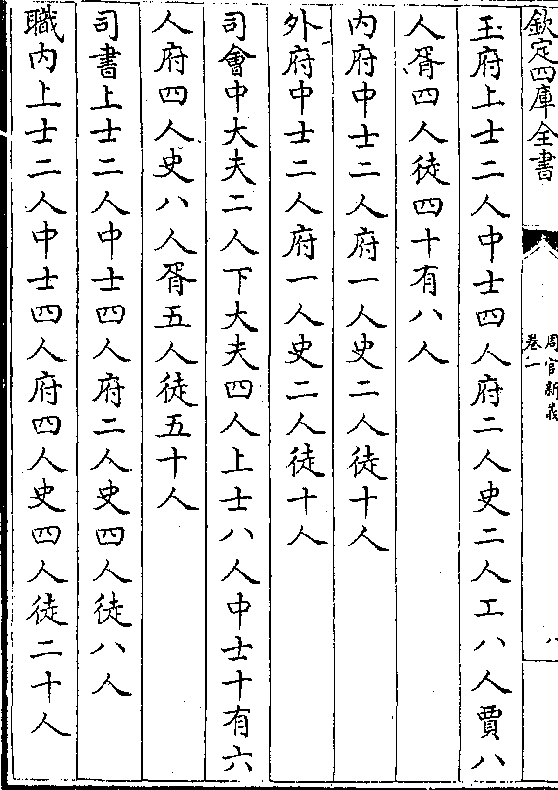 欽定四庫全書
周官新義
卷一
八
玉府上士二人中士四人府二人史二人工八人賈八
人胥四人徒四十有八人
内府中士二人府一人史二人徒十人
外府中士二人府一人史二人徒十人
司會中大夫二人下大夫四人上士八人中士十有六
人府四人史八人胥五人徒五十人
司書上士二人中士四人府二人史四人徒八人
職内上士二人中士四人府四人史四人徒二十人